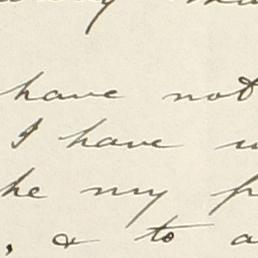 have not
I have
he my
, & to a